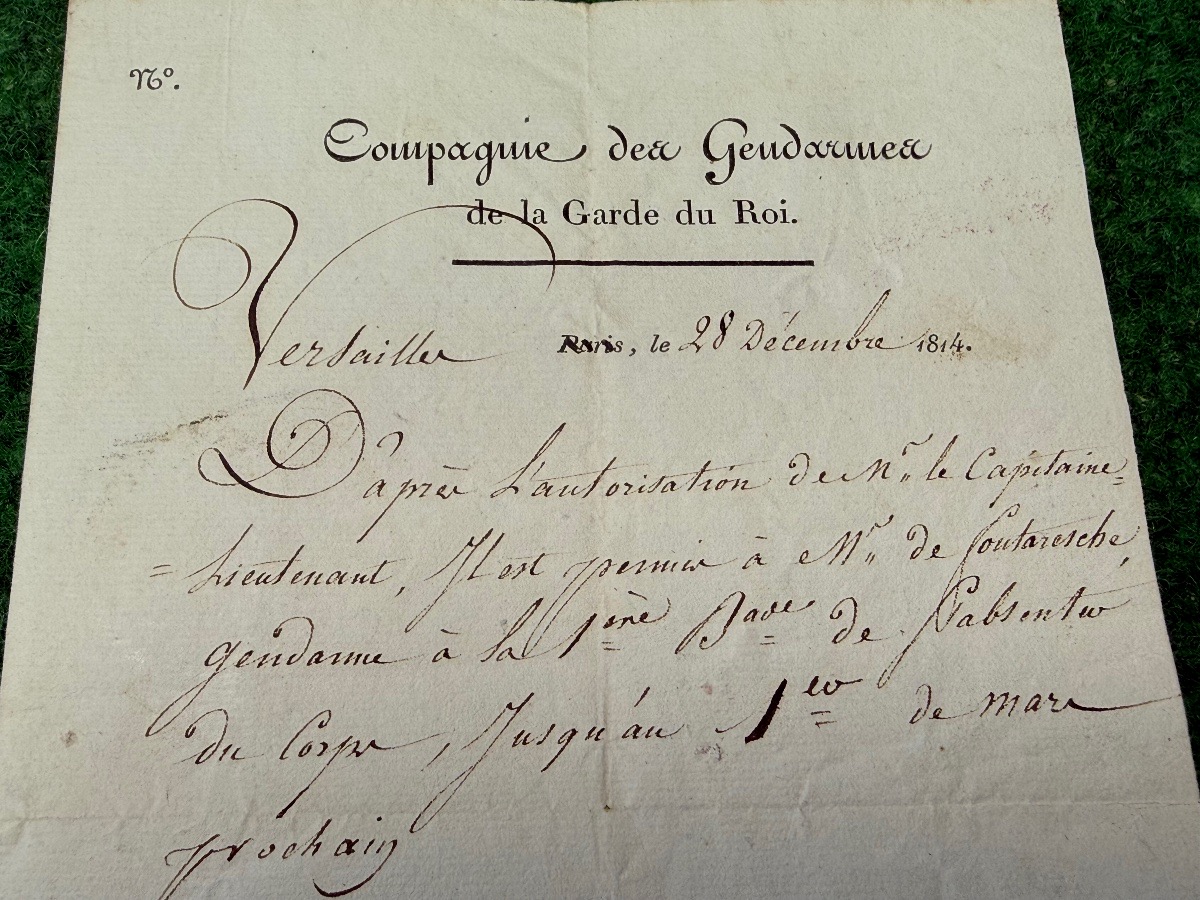 N°.
Compagnie des Gendarmes
de la Garde du Roi.
Versailles Paris, le 28 Décembre 1814.
D'après L'autorisation de Mr. le Capitaine=
=Lieutenant, Il est permis à Mr. de Coutaresche,
gendarme à la 1ère Bade de s'absenter
du Corps, Jusqu'au 1er de mars
prochain